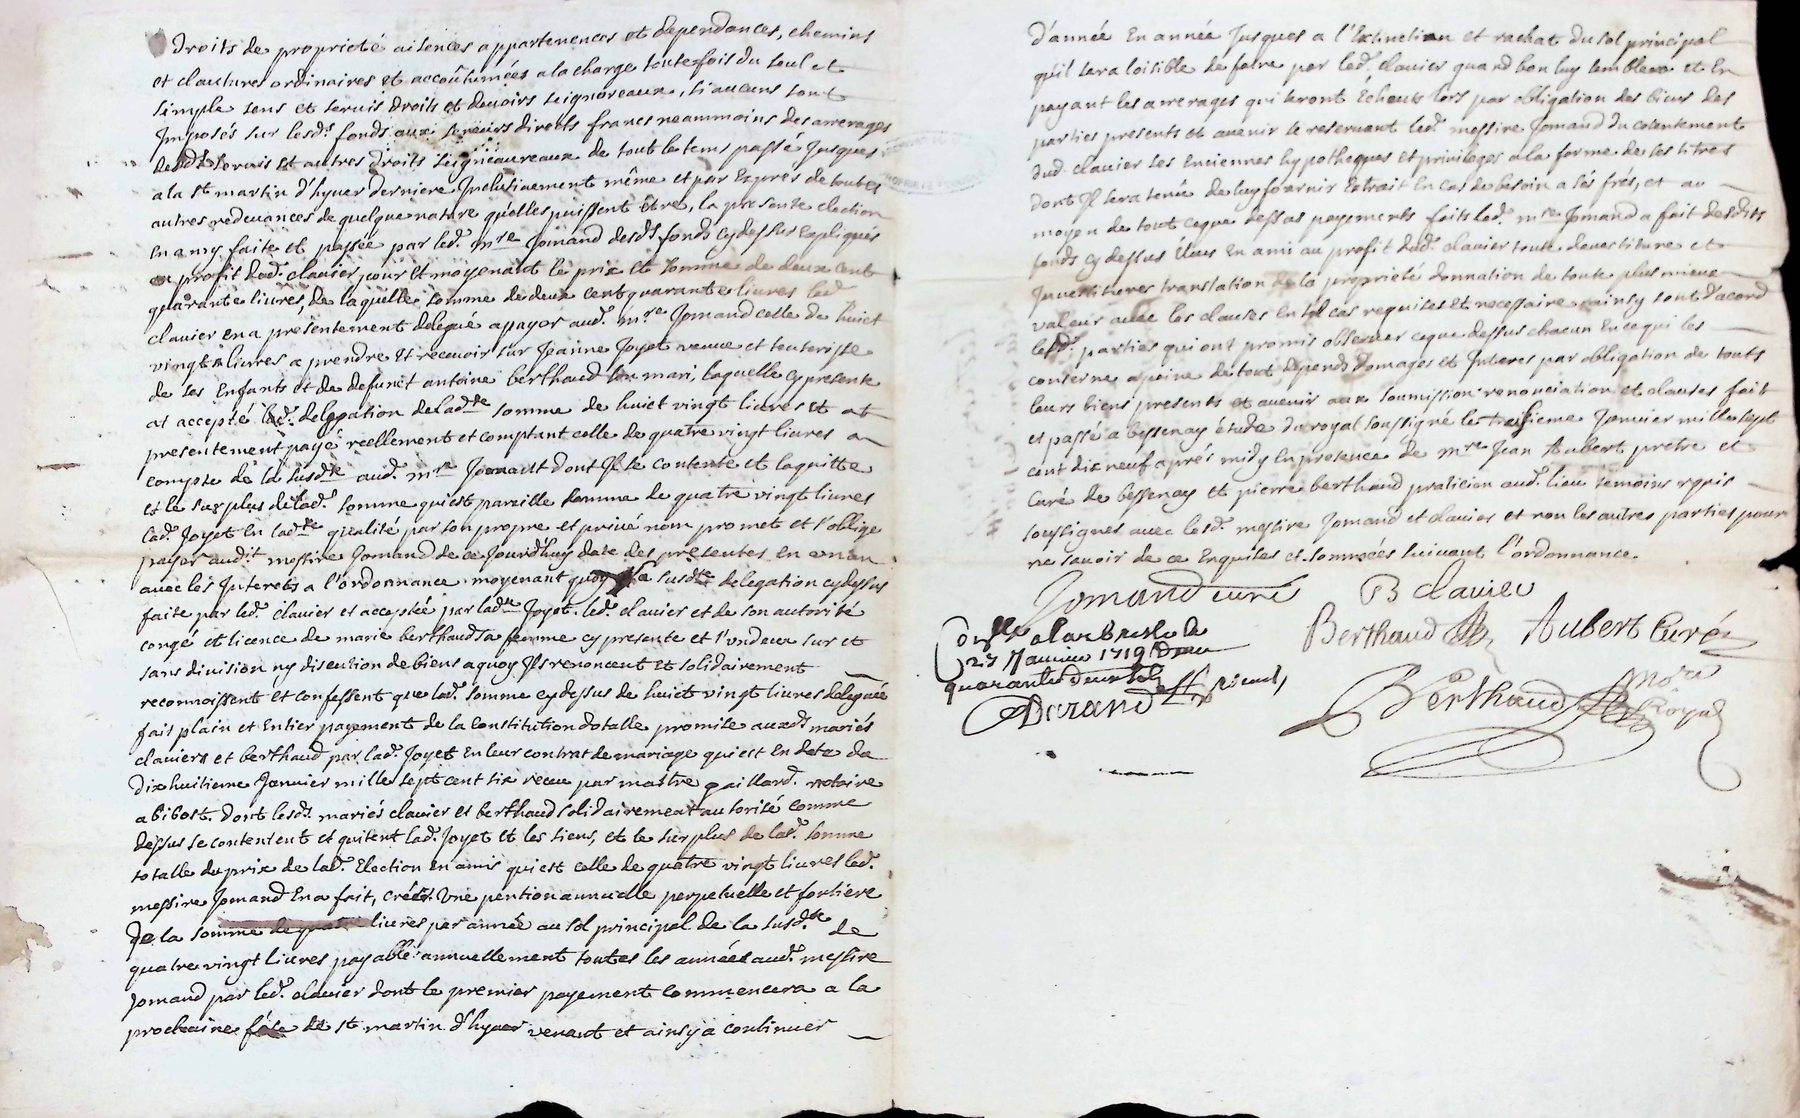 droits de proprieté aisences appartenences et dependances, chemins
et clautures ordinaires et accoûtumées a la charge toutesfois du seul et
simple sens et servis droits et devoirs seignoreaux, si aucuns sont
Imposés sur lesds. fonds aux seigneurs directs francs neammoins des arrerages
desdts servis et autres droits seigneaureaux de tout le tems passé jusques
a la st martin d'hyver derniere Inclusivement même et par Exprés de toutes
autres redevances de quelque nature qu'elles puissent Etre, la presente election
en amy faite et passée par led. mre Jomand desds fonds cy dessus Expliqués
au profit dud. clavier, pour et moyenant le prix et somme de deux cent
quarante livres, de laquelle somme de deux cent quarante livres led.
clavier en a presentement delegué a payer aud. mre Jomand celle de huict
vingts livres a prendre et recevoir sur Jeanne Joyet veuve et tuterisse
de ses Enfants et de defunct antoine berthaud son mari, laquelle cy presente
at accepté lad. delegation de ladte somme de huict vingt livres et at
presentement payé reellement et comptant celle de quatre vingt livres a
compte de la susdte aud. mre Jomand dont Il se contente et la quitte
et le surplus de lad. somme qui est pareille somme de quatre vingt livres
lad. Joyet en ladte qualité par son propre et privé nom promet et s'oblige
payer audit messire Jomand de ce Jourdhuy date des presentes en un an
avec les Interets a l'ordonnance, moyenant quoy la susdte delegation cy dessus
faite par led. clavier et acceptée par ladte Joyet. led. clavier et de son autorité
congé et licence de marie berthaud sa femme cy presente et l'un deux sur et
sans division ny discution de biens a quoy Ils renoncent et solidairement
reconnoissent et confessent que lad. somme cy dessus de huict vingt livres deleguée
fait plain et Entier payement de la constitution dotalle promise auxds mariés
claviers et berthaud par lad. Joyet En leur contrat de mariage qui est En date du
dixhuitieme Janvier mille sept cent six receu par maitre gaillard notaire
a bibost. dont lesds. mariés clavier et berthaud solidairement autorisé comme
dessus se contentent et quitent lad. Joyet et les siens, et le surplus de lad. somme
totalle du prix de lad. Election en amis qui est celle de quatre vingt livres led.
messire Jomand En a fait, créé Une pention annuelle perpetuelle et fonsiere
de la somme de quatre livres par année au sol principal de la susdte de
quatre vingt livres payable annuellement toutes les années aud. messire
Jomand par led. clavier dont le premier payement commencera a la
prochaine féte de st martin d'hyver venant et ainsy a continuer
d'année En année Jusques a l'Extinction et rachat du sol principal
qu'il sera loisible de faire par led. clavier quand bon luy semblera et En
payant les arrerages qui seront Echeuts lors par obligation des biens des
parties presents et avenir se reservant led. messire Jomand du consentement
dud. clavier ses Enciennes hypotheques et privileges a la forme de ses titres
dont Il sera tenu de luy fournir Extrait En cas de besoin a sés frés, et au
moyen de tout ceque dessus payements faits led. mre Jomand a fait desdits
fonds cy dessus Elus En ami au profit dud. clavier toute devestiture et
Investitures translation de la proprieté donnation de toute plus mieux
valeur avec les clauses En tel cas requises et necessaire, ainsy sont d'acord
lesds. parties qui ont promis observer ceque dessus chacun En ce qui les
conserne a peine de tout depends domages et Interes par obligation de touts
leurs biens presents et avenir aux soumission renonciation et clauses fait
et passé a bessenay étude du royal soussigné le treisieme Janvier mille sept
cent dix neuf aprés midy En presence de mre Jean Aubert pretre et
Curé de bessenay et pierre berthaud praticien aud. lieu temoins requis
soussignes avec lesd. messire Jomand et clavier et non les autres parties pour
ne savoir de ce Enquises et sommées suivant l'ordonnance.
Jomand curé B clavier
Berthaud Aubert Curé
Conllé a larbresle le
23 Janvier 1719
quarante
Durand
Berthaud nore
Royal